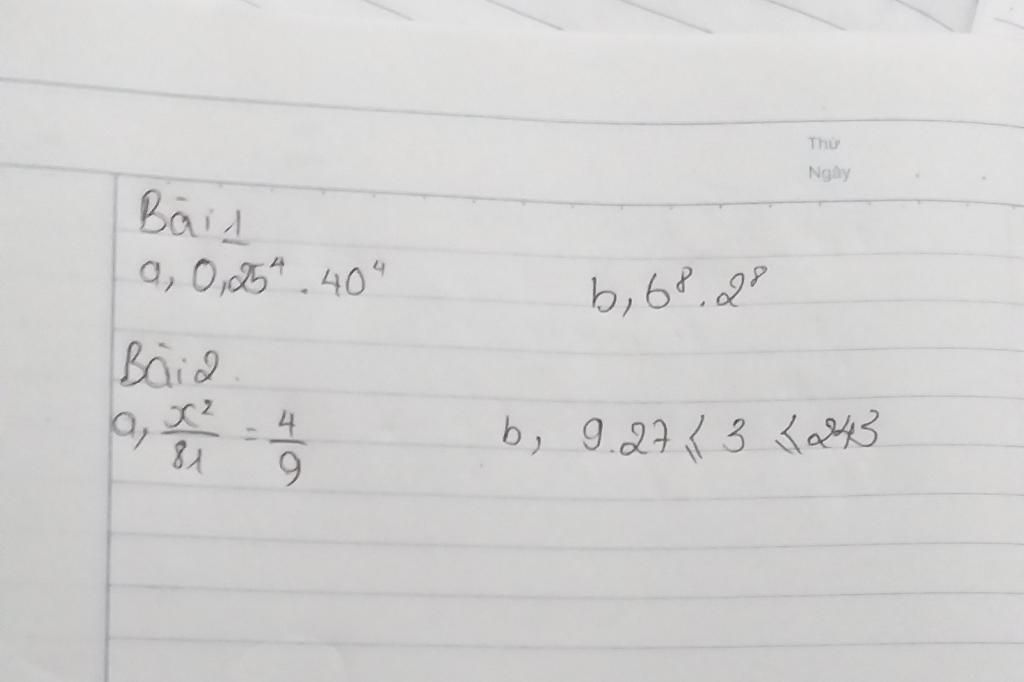 Thứ
Ngày
Bài 1
a, 0,25⁴ . 40⁴ b, 6⁸ . 2⁸
Bài 2
a, x²/81 = 4/9 b, 9.27 ⩽ 3 ⩽ 243